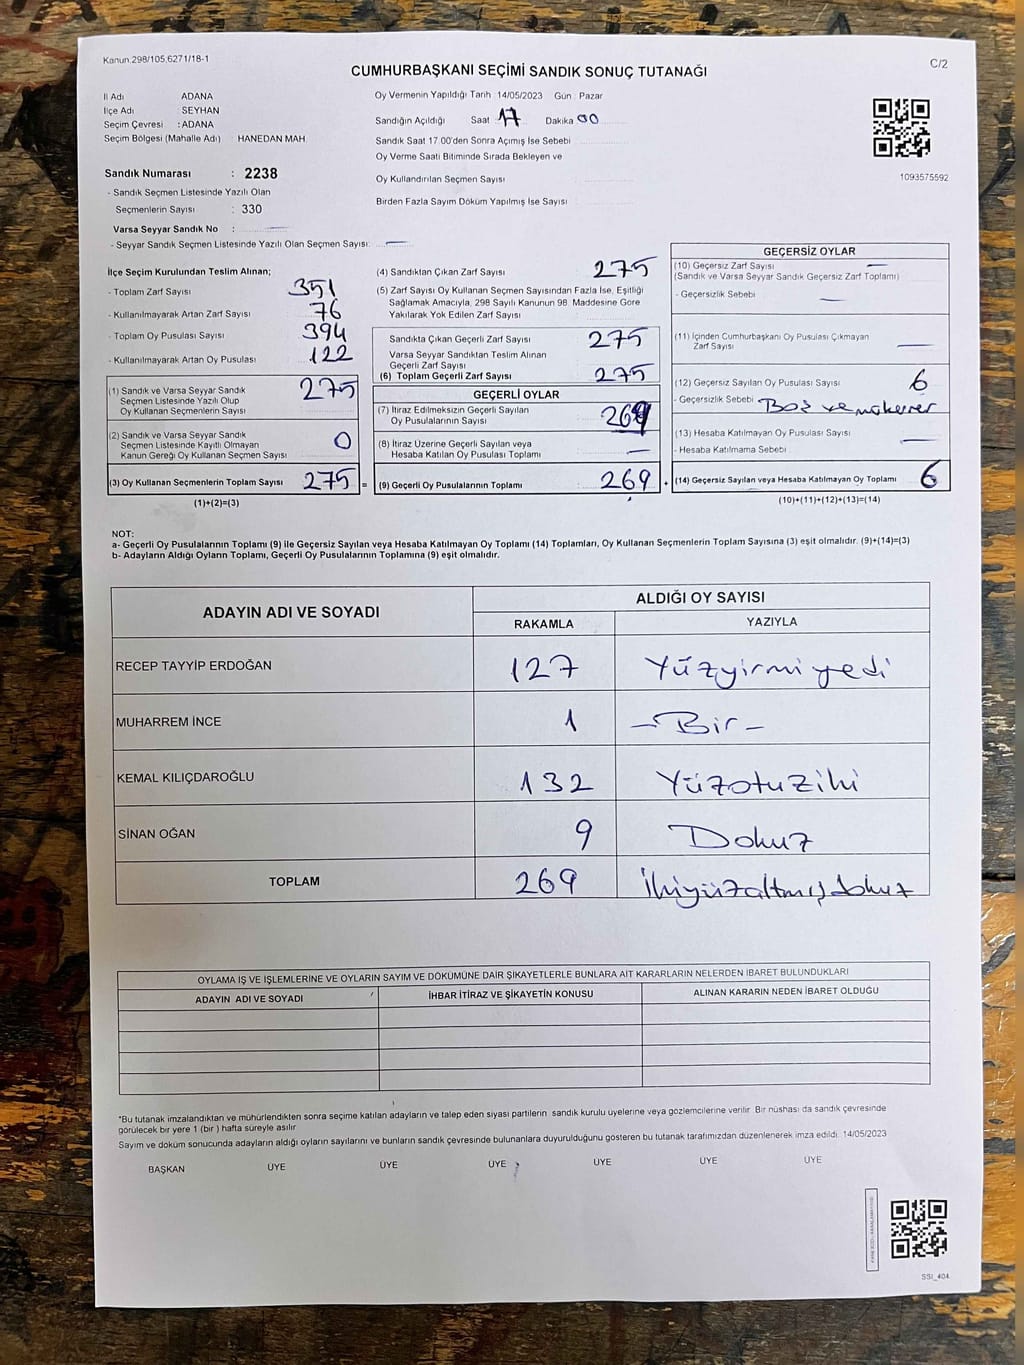 Kanun.298/105,6271/18-1
C/2
CUMHURBAŞKANI SEÇİMİ SANDIK SONUÇ TUTANAĞI
İl Adı ADANA
İlçe Adı SEYHAN
Seçim Çevresi : ADANA
Seçim Bölgesi (Mahalle Adı) : HANEDAN MAH.
Sandık Numarası : 2238
- Sandık Seçmen Listesinde Yazılı Olan
Seçmenlerin Sayısı : 330
Varsa Seyyar Sandık No :
- Seyyar Sandık Seçmen Listesinde Yazılı Olan Seçmen Sayısı:
Oy Vermenin Yapıldığı Tarih : 14/05/2023 Gün : Pazar
Sandığın Açıldığı Saat 17 Dakika 00
Sandık Saat 17.00'den Sonra Açılmış İse Sebebi
Oy Verme Saati Bitiminde Sırada Bekleyen ve
Oy Kullandırılan Seçmen Sayısı
Birden Fazla Sayım Döküm Yapılmış İse Sayısı
1093575592
İlçe Seçim Kurulundan Teslim Alınan;
- Toplam Zarf Sayısı 351
- Kullanılmayarak Artan Zarf Sayısı 76
- Toplam Oy Pusulası Sayısı 394
- Kullanılmayarak Artan Oy Pusulası 122
(1) Sandık ve Varsa Seyyar Sandık
Seçmen Listesinde Yazılı Olup
Oy Kullanan Seçmenlerin Sayısı 275
(2) Sandık ve Varsa Seyyar Sandık
Seçmen Listesinde Kayıtlı Olmayan
Kanun Gereği Oy Kullanan Seçmen Sayısı 0
(3) Oy Kullanan Seçmenlerin Toplam Sayısı 275 =
(1)+(2)=(3)
(4) Sandıktan Çıkan Zarf Sayısı 275
(5) Zarf Sayısı Oy Kullanan Seçmen Sayısından Fazla İse, Eşitliği
Sağlamak Amacıyla, 298 Sayılı Kanunun 98. Maddesine Göre
Yakılarak Yok Edilen Zarf Sayısı
Sandıkta Çıkan Geçerli Zarf Sayısı 275
Varsa Seyyar Sandıktan Teslim Alınan
Geçerli Zarf Sayısı
(6) Toplam Geçerli Zarf Sayısı 275
GEÇERLİ OYLAR
(7) İtiraz Edilmeksizin Geçerli Sayılan
Oy Pusulalarının Sayısı 269
(8) İtiraz Üzerine Geçerli Sayılan veya
Hesaba Katılan Oy Pusulası Toplamı
(9) Geçerli Oy Pusulalarının Toplamı 269
GEÇERSİZ OYLAR
(10) Geçersiz Zarf Sayısı
(Sandık ve Varsa Seyyar Sandık Geçersiz Zarf Toplamı)
- Geçersizlik Sebebi
(11) İçinden Cumhurbaşkanı Oy Pusulası Çıkmayan
Zarf Sayısı
(12) Geçersiz Sayılan Oy Pusulası Sayısı 6
- Geçersizlik Sebebi Boş ve mükerrer
(13) Hesaba Katılmayan Oy Pusulası Sayısı
- Hesaba Katılmama Sebebi
(14) Geçersiz Sayılan veya Hesaba Katılmayan Oy Toplamı 6
(10)+(11)+(12)+(13)=(14)
NOT:
a- Geçerli Oy Pusulalarının Toplamı (9) ile Geçersiz Sayılan veya Hesaba Katılmayan Oy Toplamı (14) Toplamları, Oy Kullanan Seçmenlerin Toplam Sayısına (3) eşit olmalıdır. (9)+(14)=(3)
b- Adayların Aldığı Oyların Toplamı, Geçerli Oy Pusulalarının Toplamına (9) eşit olmalıdır.
ADAYIN ADI VE SOYADI
ALDIĞI OY SAYISI
RAKAMLA YAZIYLA
RECEP TAYYİP ERDOĞAN 127 Yüzyirmi yedi
MUHARREM İNCE 1 - Bir -
KEMAL KILIÇDAROĞLU 132 Yüzotuziki
SİNAN OĞAN 9 Dokuz
TOPLAM 269 İkiyüzaltmışdokuz
OYLAMA İŞ VE İŞLEMLERİNE VE OYLARIN SAYIM VE DÖKÜMÜNE DAİR ŞİKAYETLERLE BUNLARA AİT KARARLARIN NELERDEN İBARET BULUNDUKLARI
ADAYIN ADI VE SOYADI İHBAR İTİRAZ VE ŞİKAYETİN KONUSU ALINAN KARARIN NEDEN İBARET OLDUĞU
*Bu tutanak imzalandıktan ve mühürlendikten sonra seçime katılan adayların ve talep eden siyasi partilerin sandık kurulu üyelerine veya gözlemcilerine verilir. Bir nüshası da sandık çevresinde
görülecek bir yere 1 (bir) hafta süreyle asılır
Sayım ve döküm sonucunda adayların aldığı oyların sayılarını ve bunların sandık çevresinde bulunanlara duyurulduğunu gösteren bu tutanak tarafımızdan düzenlenerek imza edildi. 14/05/2023
BAŞKAN ÜYE ÜYE ÜYE ÜYE ÜYE ÜYE
SSI_404